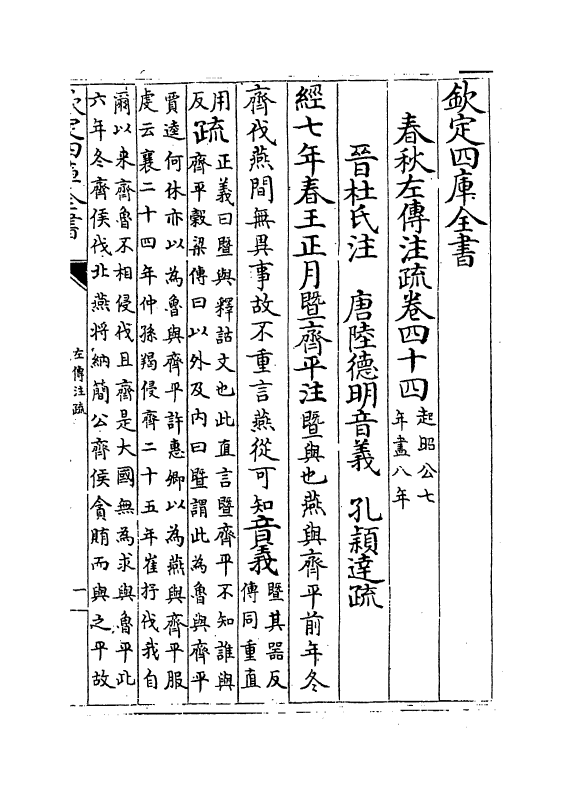 欽定四庫全書
春秋左傳注疏卷四十四
起昭公七
年盡八年
晉杜氏注 唐陸德明音義 孔穎達疏
經七年春王正月暨齊平注暨與也燕與齊平前年冬
齊伐燕間無異事故不重言燕從可知音義
暨其器反
傳同重直
用
反
疏
正義曰暨與釋詁文也此直言暨齊平不知誰與
齊平穀梁傳曰以外及内曰暨謂此為魯與齊平
賈逵何休亦以為魯與齊平許惠卿以為燕與齊平服
虔云襄二十四年仲孫羯侵齊二十五年崔抒伐我自
爾以来齊魯不相侵伐且齊是大國無為求與魯平此
六年冬齊侯伐北燕将納簡公齊侯貪賄而與之平故
欽定四庫全書
左傳注疏
一